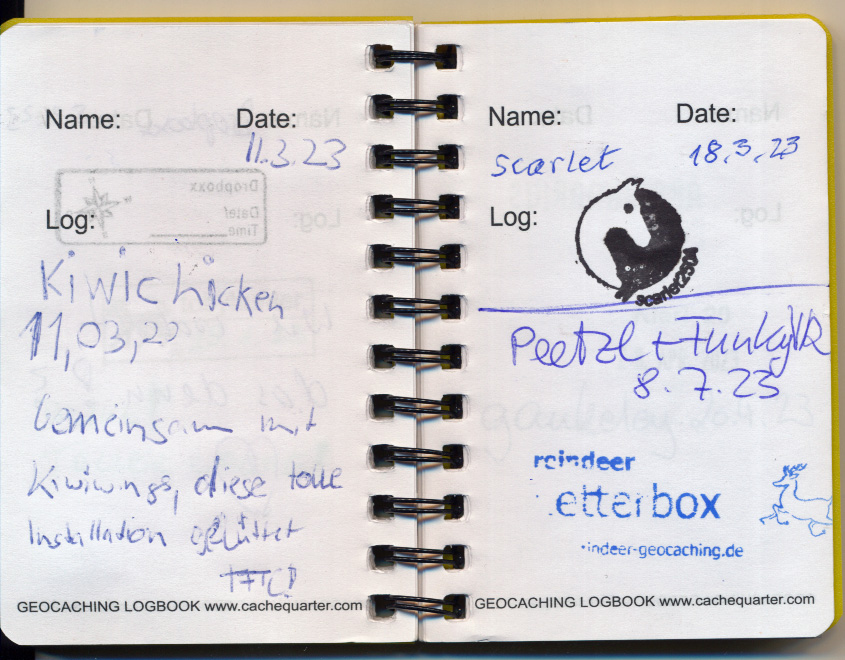 Name: Date:
11.3.23
Log:
Kiwichicken
11,03,20
Gemeinsam mit
Kiwiwings, diese tolle
Installation gelüftet
TFTC!
GEOCACHING LOGBOOK www.cachequarter.com
Name: Date:
scarlet 18.3.23
Log:
scarlet2504
Peetzl + FunkyVR
8.7.23
reindeer
etterbox
indeer-geocaching.de
GEOCACHING LOGBOOK www.cachequarter.com